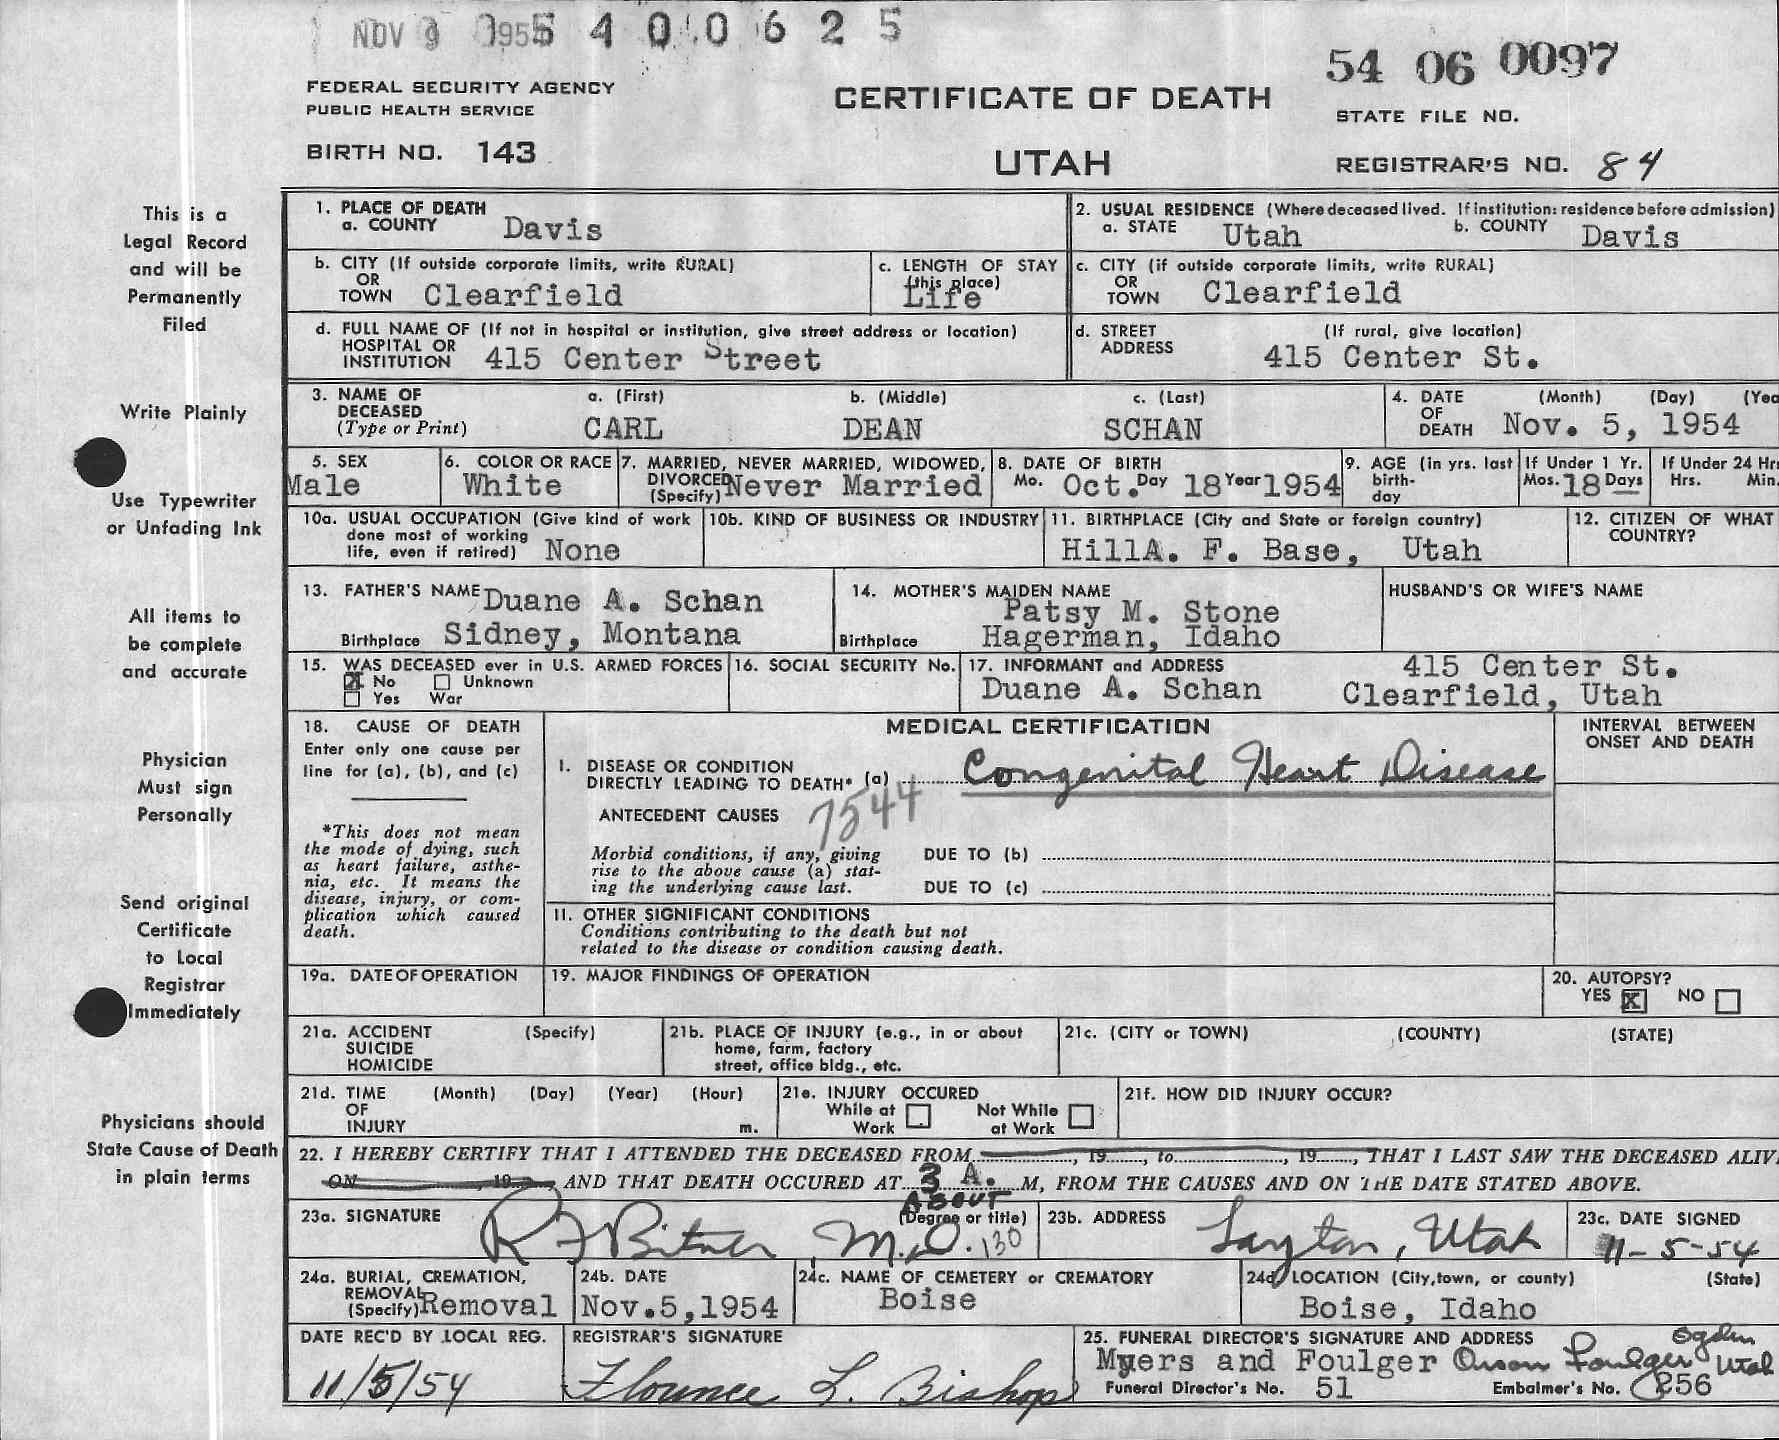 NOV 9 1955 5 4 0 0 6 2 5
54 06 0097
FEDERAL SECURITY AGENCY
PUBLIC HEALTH SERVICE
CERTIFICATE OF DEATH
STATE FILE NO.
BIRTH NO. 143
UTAH
REGISTRAR'S NO. 84
This is a
Legal Record
and will be
Permanently
Filed
Write Plainly
Use Typewriter
or Unfading Ink
All items to
be complete
and accurate
Physician
Must sign
Personally
Send original
Certificate
to Local
Registrar
Immediately
Physicians should
State Cause of Death
in plain terms
1. PLACE OF DEATH
a. COUNTY Davis
2. USUAL RESIDENCE (Where deceased lived. If institution: residence before admission)
a. STATE Utah b. COUNTY Davis
b. CITY (If outside corporate limits, write RURAL)
OR
TOWN Clearfield
c. LENGTH OF STAY
(this place)
Life
c. CITY (if outside corporate limits, write RURAL)
OR
TOWN Clearfield
d. FULL NAME OF (If not in hospital or institution, give street address or location)
HOSPITAL OR
INSTITUTION 415 Center Street
d. STREET (If rural, give location)
ADDRESS 415 Center St.
3. NAME OF a. (First) b. (Middle) c. (Last)
DECEASED
(Type or Print) CARL DEAN SCHAN
4. DATE (Month) (Day) (Yea
OF
DEATH Nov. 5, 1954
5. SEX
Male
6. COLOR OR RACE
White
7. MARRIED, NEVER MARRIED, WIDOWED,
DIVORCED
(Specify) Never Married
8. DATE OF BIRTH
Mo. Oct. Day 18 Year 1954
9. AGE (in yrs. last
birth-
day
If Under 1 Yr.
Mos. 18 Days
If Under 24 Hrs
Hrs. Min.
10a. USUAL OCCUPATION (Give kind of work
done most of working
life, even if retired) None
10b. KIND OF BUSINESS OR INDUSTRY
11. BIRTHPLACE (City and State or foreign country)
HillA. F. Base, Utah
12. CITIZEN OF WHAT
COUNTRY?
13. FATHER'S NAME Duane A. Schan
Birthplace Sidney, Montana
14. MOTHER'S MAIDEN NAME
Patsy M. Stone
Birthplace Hagerman, Idaho
HUSBAND'S OR WIFE'S NAME
15. WAS DECEASED ever in U.S. ARMED FORCES
X No Unknown
Yes War
16. SOCIAL SECURITY No.
17. INFORMANT and ADDRESS 415 Center St.
Duane A. Schan Clearfield, Utah
18. CAUSE OF DEATH
Enter only one cause per
line for (a), (b), and (c)
*This does not mean
the mode of dying, such
as heart failure, asthe-
nia, etc. It means the
disease, injury, or com-
plication which caused
death.
MEDICAL CERTIFICATION
INTERVAL BETWEEN
ONSET AND DEATH
I. DISEASE OR CONDITION
DIRECTLY LEADING TO DEATH* (a) Congenital Heart Disease
7544
ANTECEDENT CAUSES
Morbid conditions, if any, giving
rise to the above cause (a) stat-
ing the underlying cause last.
DUE TO (b)
DUE TO (c)
II. OTHER SIGNIFICANT CONDITIONS
Conditions contributing to the death but not
related to the disease or condition causing death.
19a. DATE OF OPERATION
19. MAJOR FINDINGS OF OPERATION
20. AUTOPSY?
YES X NO
21a. ACCIDENT (Specify)
SUICIDE
HOMICIDE
21b. PLACE OF INJURY (e.g., in or about
home, farm, factory
street, office bldg., etc.
21c. (CITY or TOWN) (COUNTY) (STATE)
21d. TIME (Month) (Day) (Year) (Hour)
OF
INJURY m.
21e. INJURY OCCURED
While at Work Not While at Work
21f. HOW DID INJURY OCCUR?
22. I HEREBY CERTIFY THAT I ATTENDED THE DECEASED FROM, 19, to, 19, THAT I LAST SAW THE DECEASED ALIV
ON, 19, AND THAT DEATH OCCURED AT 3 A. M, FROM THE CAUSES AND ON THE DATE STATED ABOVE.
ABOUT
23a. SIGNATURE (Degree or title)
R F Bitner M.D. 130
23b. ADDRESS
Layton, Utah
23c. DATE SIGNED
11-5-54
24a. BURIAL, CREMATION,
REMOVAL
(Specify) Removal
24b. DATE
Nov.5,1954
24c. NAME OF CEMETERY or CREMATORY
Boise
24d. LOCATION (City, town, or county) (State)
Boise, Idaho
DATE REC'D BY LOCAL REG.
11/5/54
REGISTRAR'S SIGNATURE
Flounce L. Bishop
25. FUNERAL DIRECTOR'S SIGNATURE AND ADDRESS
Myers and Foulger Orson Foulger Ogden Utah
Funeral Director's No. 51 Embalmer's No. 256